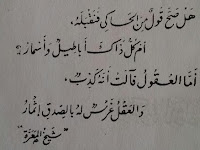 هَلْ صَحَّ قَوْلٌ مِنَ الْحَاكِي فَنَقْبَلَهُ.
أَمْ كُلُّ ذَاكَ أَبَاطِيلٌ وَأَسْمَارُ؟
أَمَّا العُقُولُ فَآلَتْ أَنَّهُ كَذِبٌ.
وَالعَقْلُ غَرْسٌ لَهُ بِالصِّدْقِ إِثْمَارُ
"شيخ المعرّة"